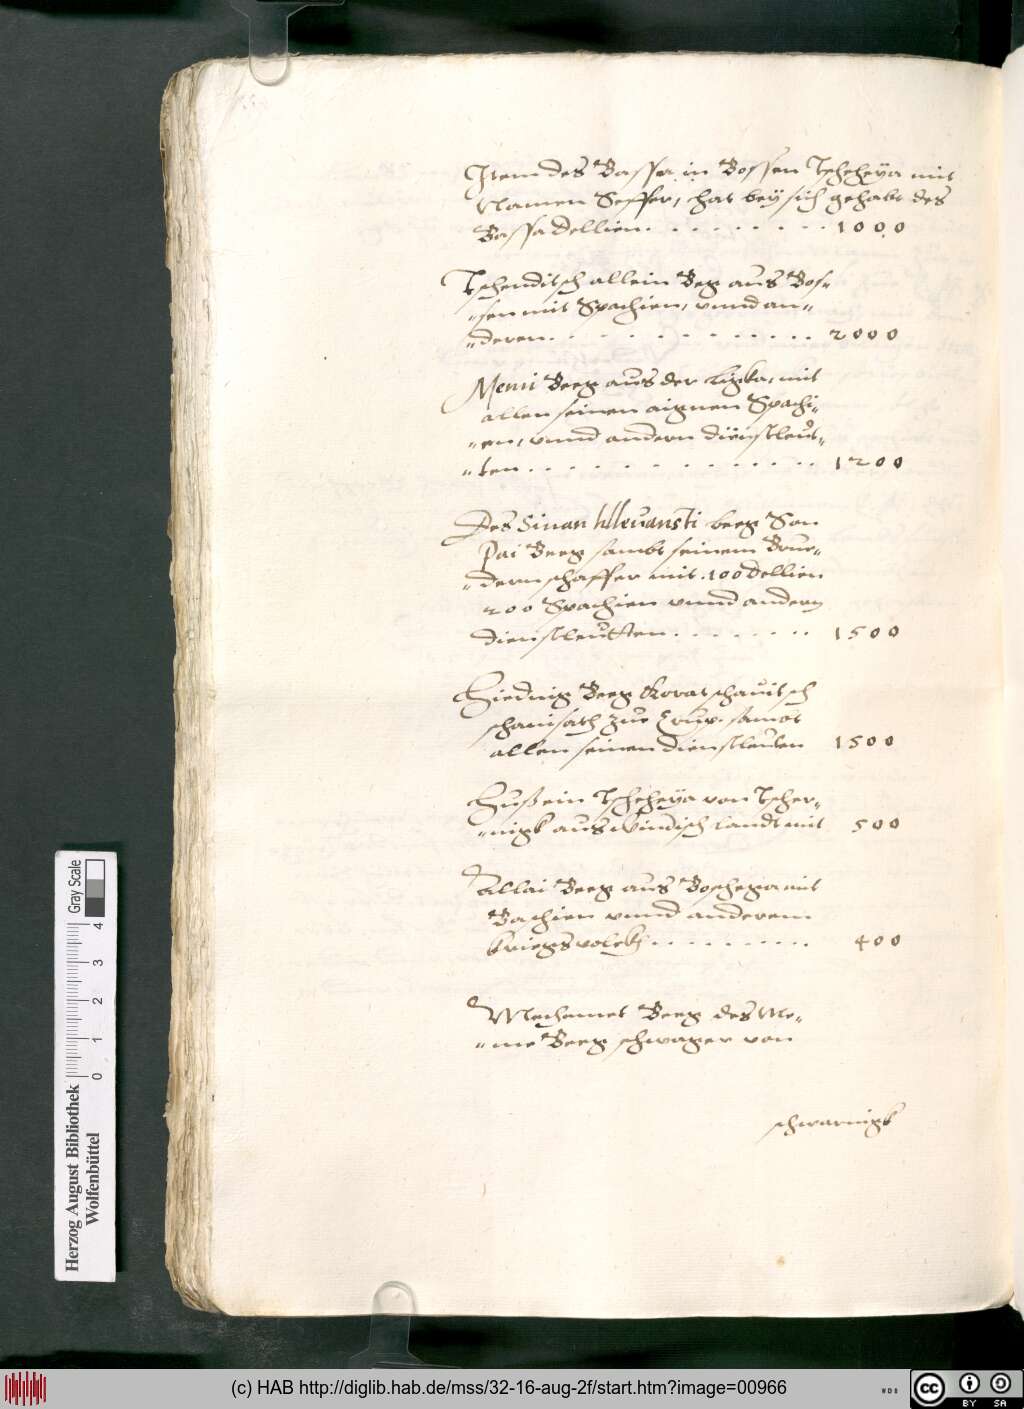 Item des Bassa in Bossen Tscheheÿa mit
Namen Seffer, hat beÿ sich gehabt des
Bassa dellien. . . . . . . . . 1000
Tschenditsch allein Beg aus Bos=
=sen mit Spachien, vnnd an=
=deren. . . . . . . . . . . 2000
Memi Beeg aus der Ligka, mit
allen seinen aignen Spachi=
=en, vnnd andern dienstleut=
=ten . . . . . . . . . . . 1200
Des Sinan beeg Son
Pai Beeg sambt seinem Brue=
=dern schaffer mit .100 dellien
200 Spachien vnnd andern
dienstleutten . . . . . . . . 1500
Beeg
zur sambt
allen seinen dienstleuten 1500
Hußein Tscheheÿa von Tscher=
=nigk aus Windisch landt mit 500
Allai Beeg aus Boschega mit
Bachien vnnd anderem
kriegsvolckh . . . . . . . . . 400
Mechmet Beeg des Me=
=me Beeg schwager von
schwarnigk
Herzog August Bibliothek
Wolfenbüttel
0 1 2 3 4
Gray Scale
(c) HAB http://diglib.hab.de/mss/32-16-aug-2f/start.htm?image=00966
WDB
cc BY SA